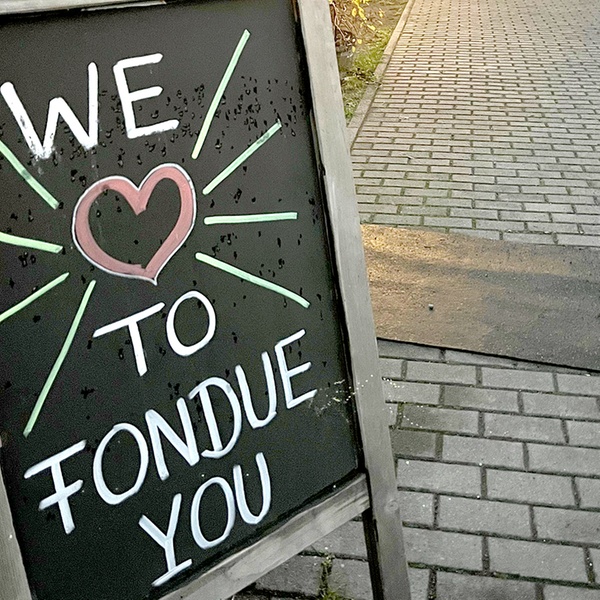 WE
TO
FONDUE
YOU